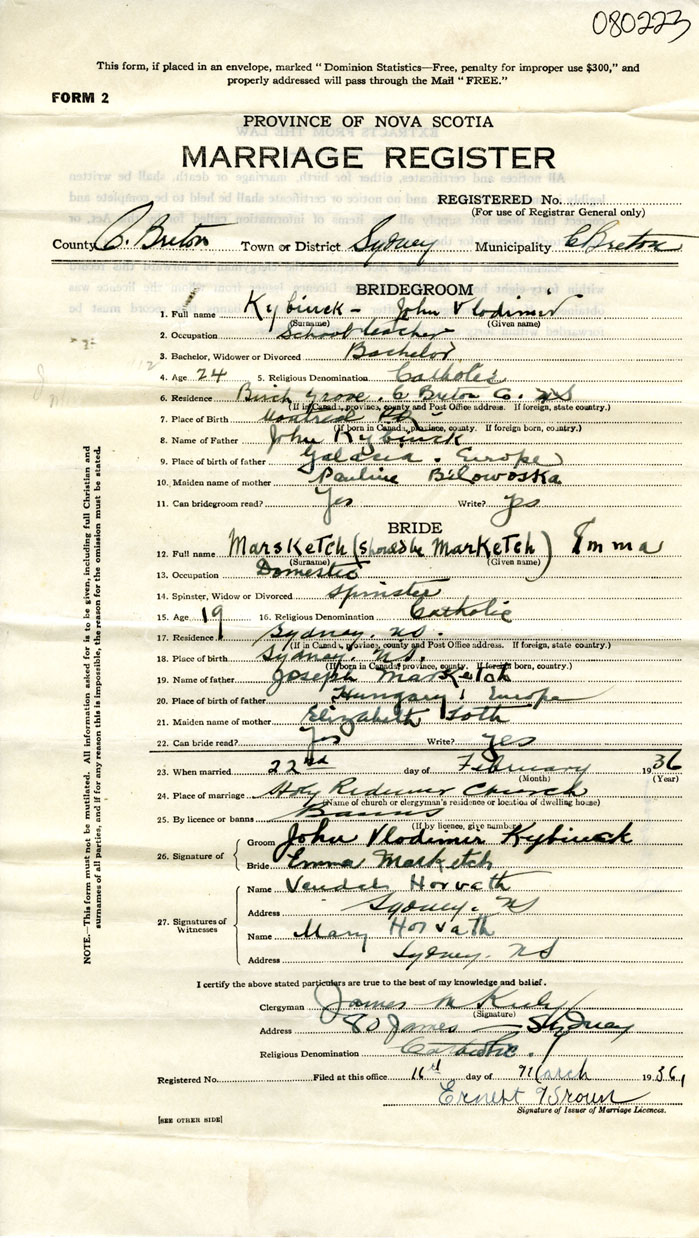 080223
This form, if placed in an envelope, marked "Dominion Statistics—Free, penalty for improper use $300," and
properly addressed will pass through the Mail "FREE."
FORM 2
PROVINCE OF NOVA SCOTIA
MARRIAGE REGISTER
REGISTERED No.
(For use of Registrar General only)
County C. Breton Town or District Sydney Municipality C Breton
BRIDEGROOM
1. Full name Kybinck - John Vlodimir
(Surname) (Given name)
2. Occupation School teacher
3. Bachelor, Widower or Divorced Bachelor
4. Age 24 5. Religious Denomination Catholic
6. Residence Birch Grove. C Breton Co. NS
(If in Canada, province, county and Post Office address. If foreign, state country.)
7. Place of Birth Montreal PQ
(If born in Canada, province, county. If foreign born, country.)
8. Name of Father John Kybinck
9. Place of birth of father Galacia. Europe
10. Maiden name of mother Pauline Bilowoska
11. Can bridegroom read? Yes Write? yes
BRIDE
12. Full name Marsketch (should be Marketch) Emma
(Surname) (Given name)
13. Occupation Domestic
14. Spinster, Widow or Divorced Spinster
15. Age 19 16. Religious Denomination Catholic
17. Residence Sydney. NS.
(If in Canada, province, county and Post Office address. If foreign, state country.)
18. Place of birth Sydney. N.S.
(If born in Canada, province, county. If foreign born, country.)
19. Name of father Joseph Marsketch
20. Place of birth of father Hungary, Europe
21. Maiden name of mother Elizabeth Toth
22. Can bride read? Yes Write? yes
23. When married 22nd day of February 1936
(Month) (Year)
24. Place of marriage Holy Redeemer Church
(Name of church or clergyman's residence or location of dwelling house)
25. By licence or banns Banns
(If by licence, give number)
26. Signature of
Groom John Vlodimir Kybinck
Bride Emma Marketch
27. Signatures of Witnesses
Name Vendel Horvath
Address Sydney. NS
Name Mary Horvath
Address Sydney. NS
I certify the above stated particulars are true to the best of my knowledge and belief.
Clergyman James M
(Signature)
Address 80 James — Sydney
Religious Denomination Catholic.
Registered No. Filed at this office 16th day of March 1936
Ernest Brown
Signature of Issuer of Marriage Licences.
[SEE OTHER SIDE]
NOTE.—This form must not be mutilated. All information asked for is to be given, including full Christian and
surnames of all parties, and if for any reason this is impossible, the reason for the omission must be stated.